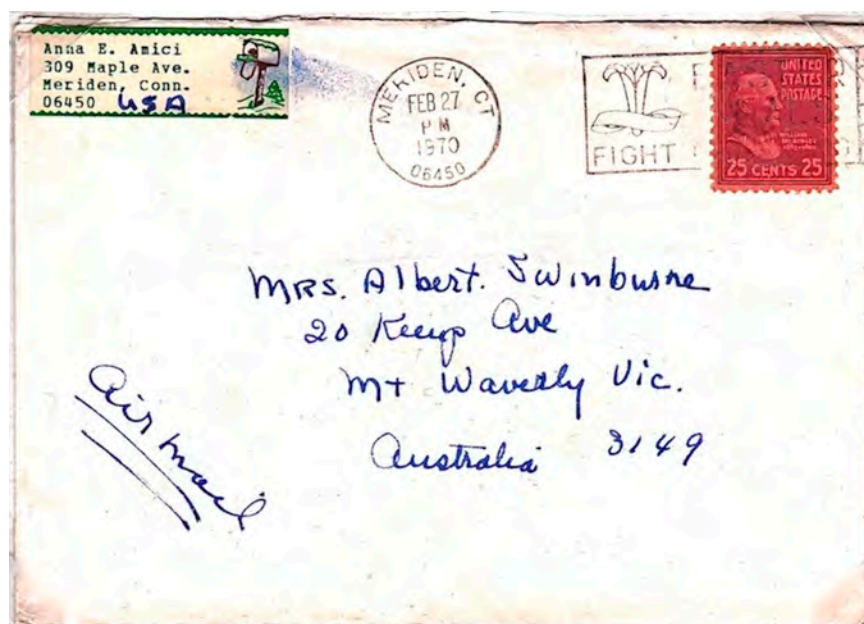 Anna E. Amici
309 Maple Ave.
Meriden, Conn.
06450 USA
MERIDEN, CT
FEB 27
PM
1970
06450
FIGHT
UNITED
STATES
POSTAGE
WILLIAM
25 CENTS 25
MRS. Albert. Swinburne
20 Ave
Mt Waverly Vic.
Australia 3149
Air Mail